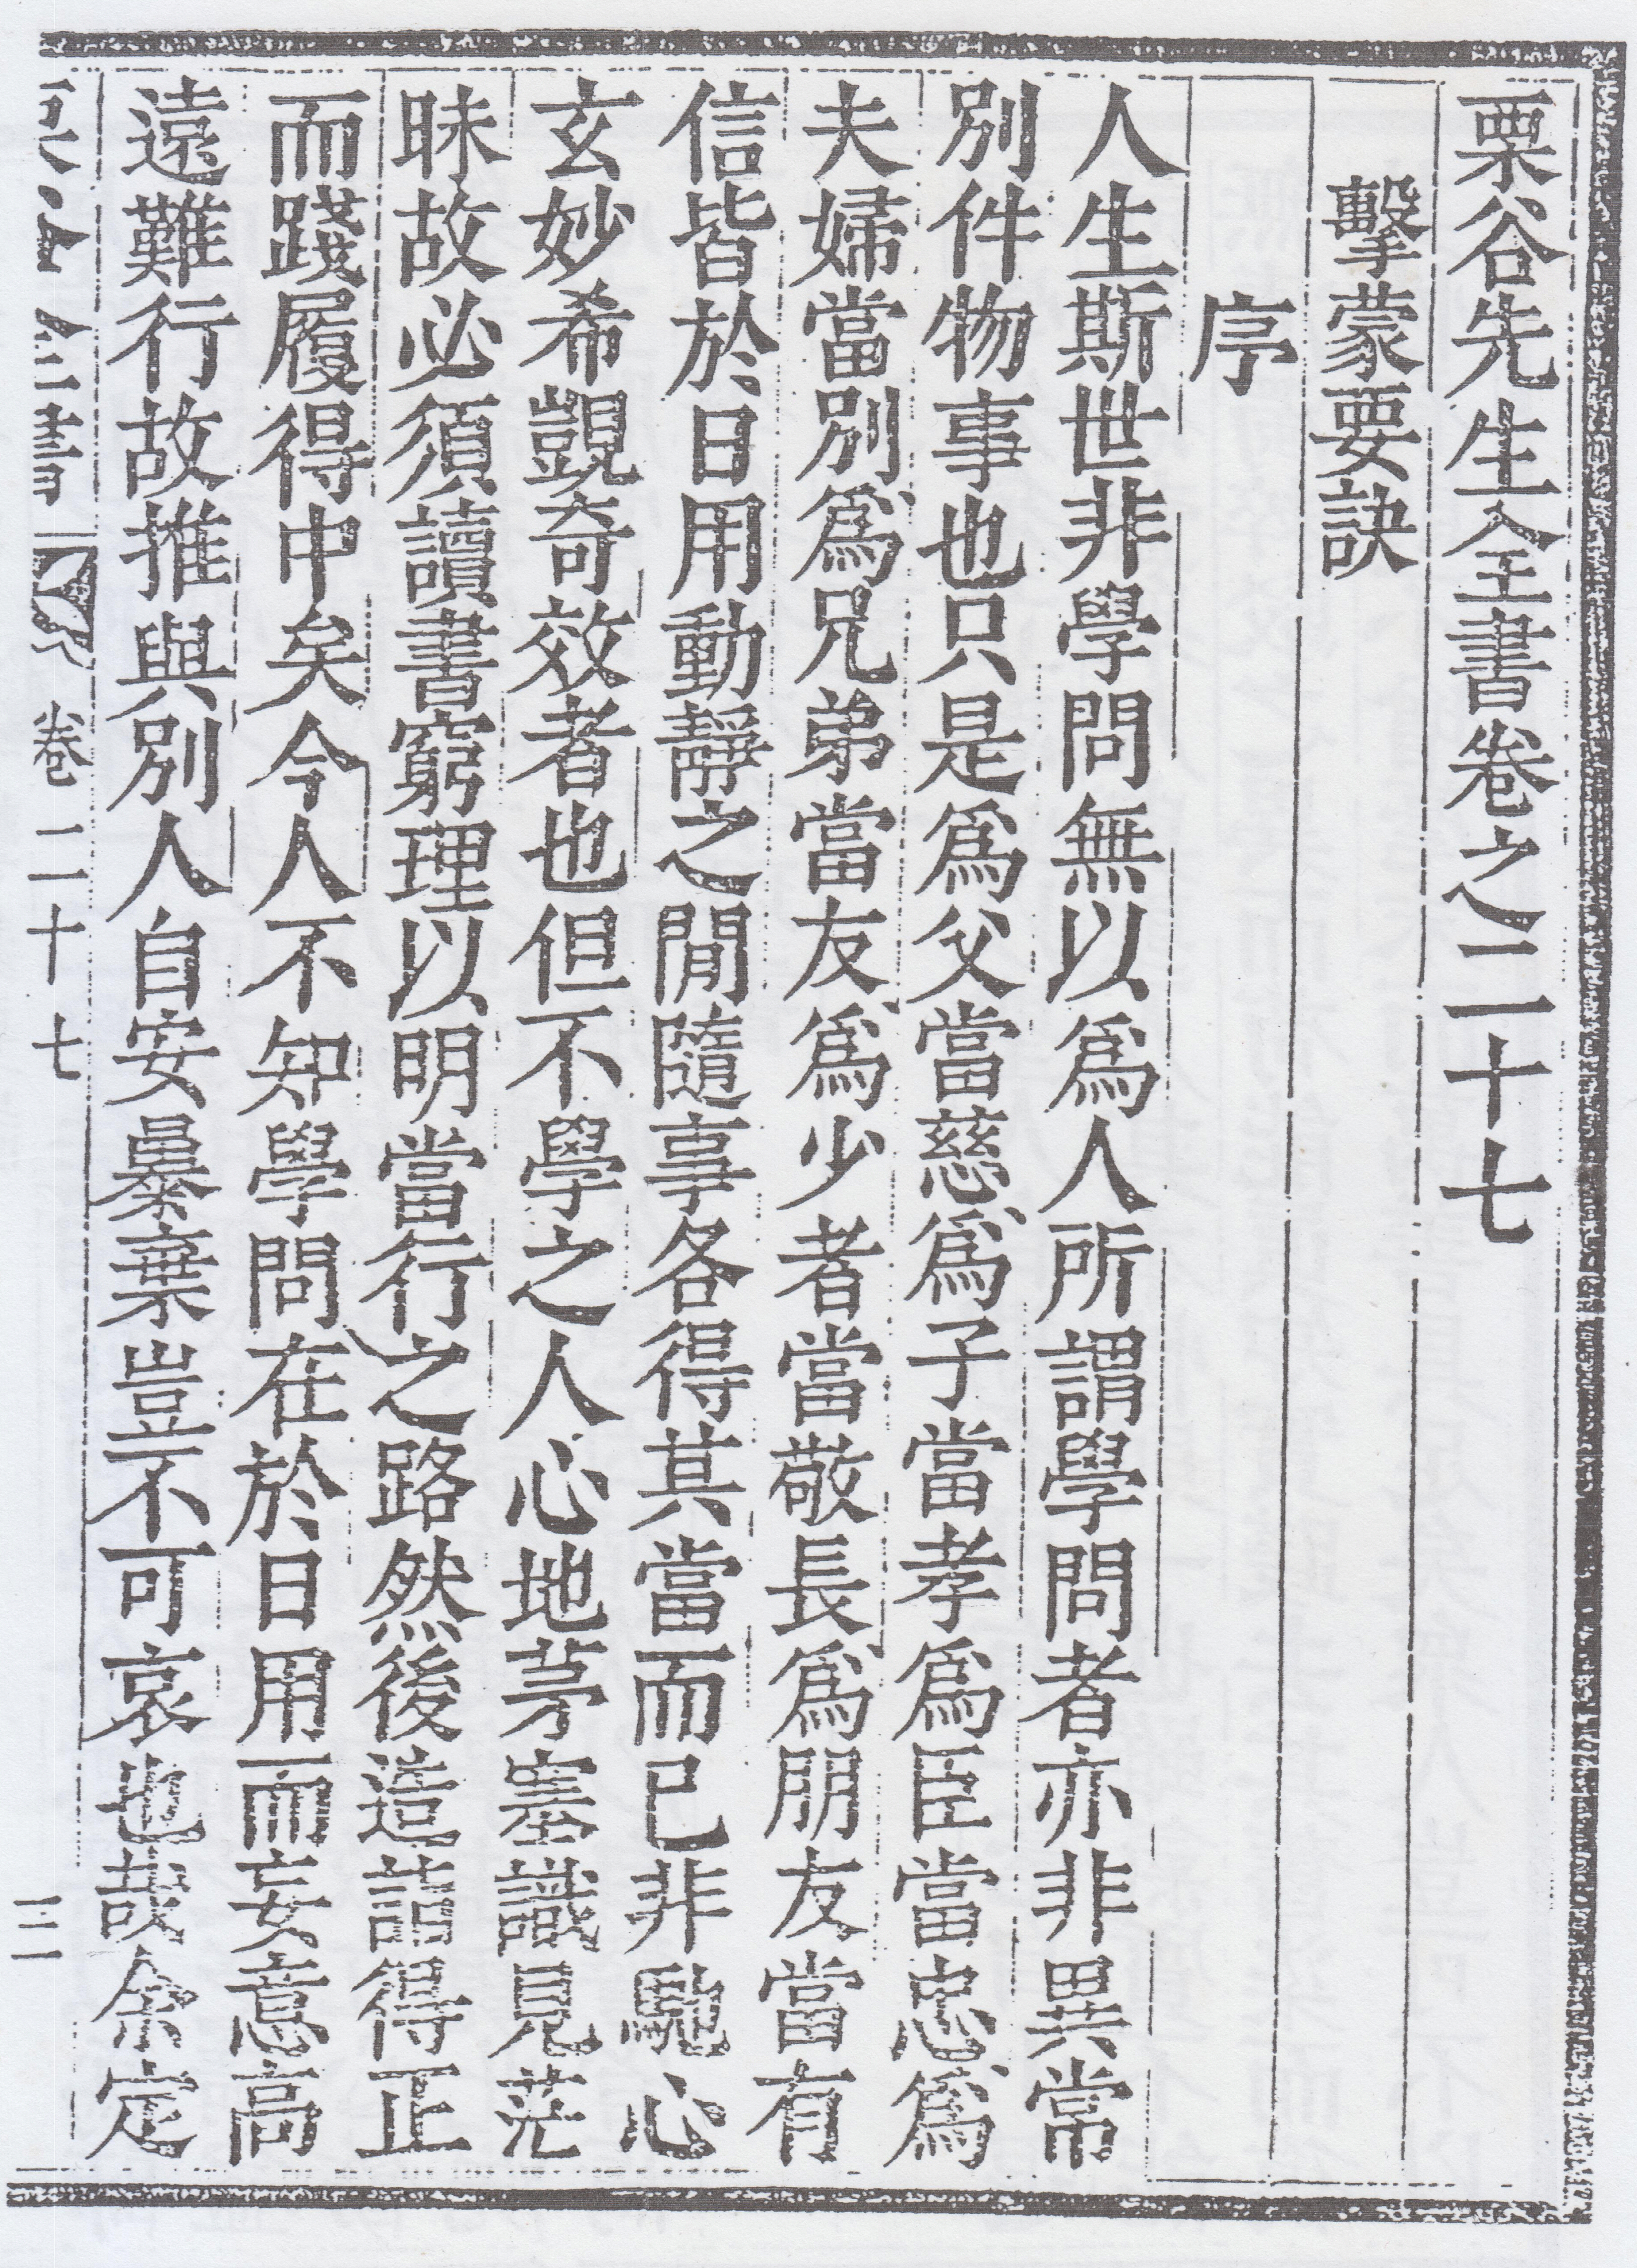 栗谷先生全書卷之二十七
擊蒙要訣
序
人生斯世非學問無以爲人所謂學問者亦非異常
別件物事也只是爲父當慈爲子當孝爲臣當忠爲
夫婦當別爲兄弟當友爲少者當敬長爲朋友當有
信皆於日用動靜之間隨事各得其當而已非馳心
玄妙希覬奇效者也但不學之人心地茅塞識見茫
昧故必須讀書窮理以明當行之路然後造詣得正
而踐履得中矣今人不知學問在於日用而妄意高
遠難行故推與別人自安暴棄豈不可哀也哉余定
全書 卷二十七 三